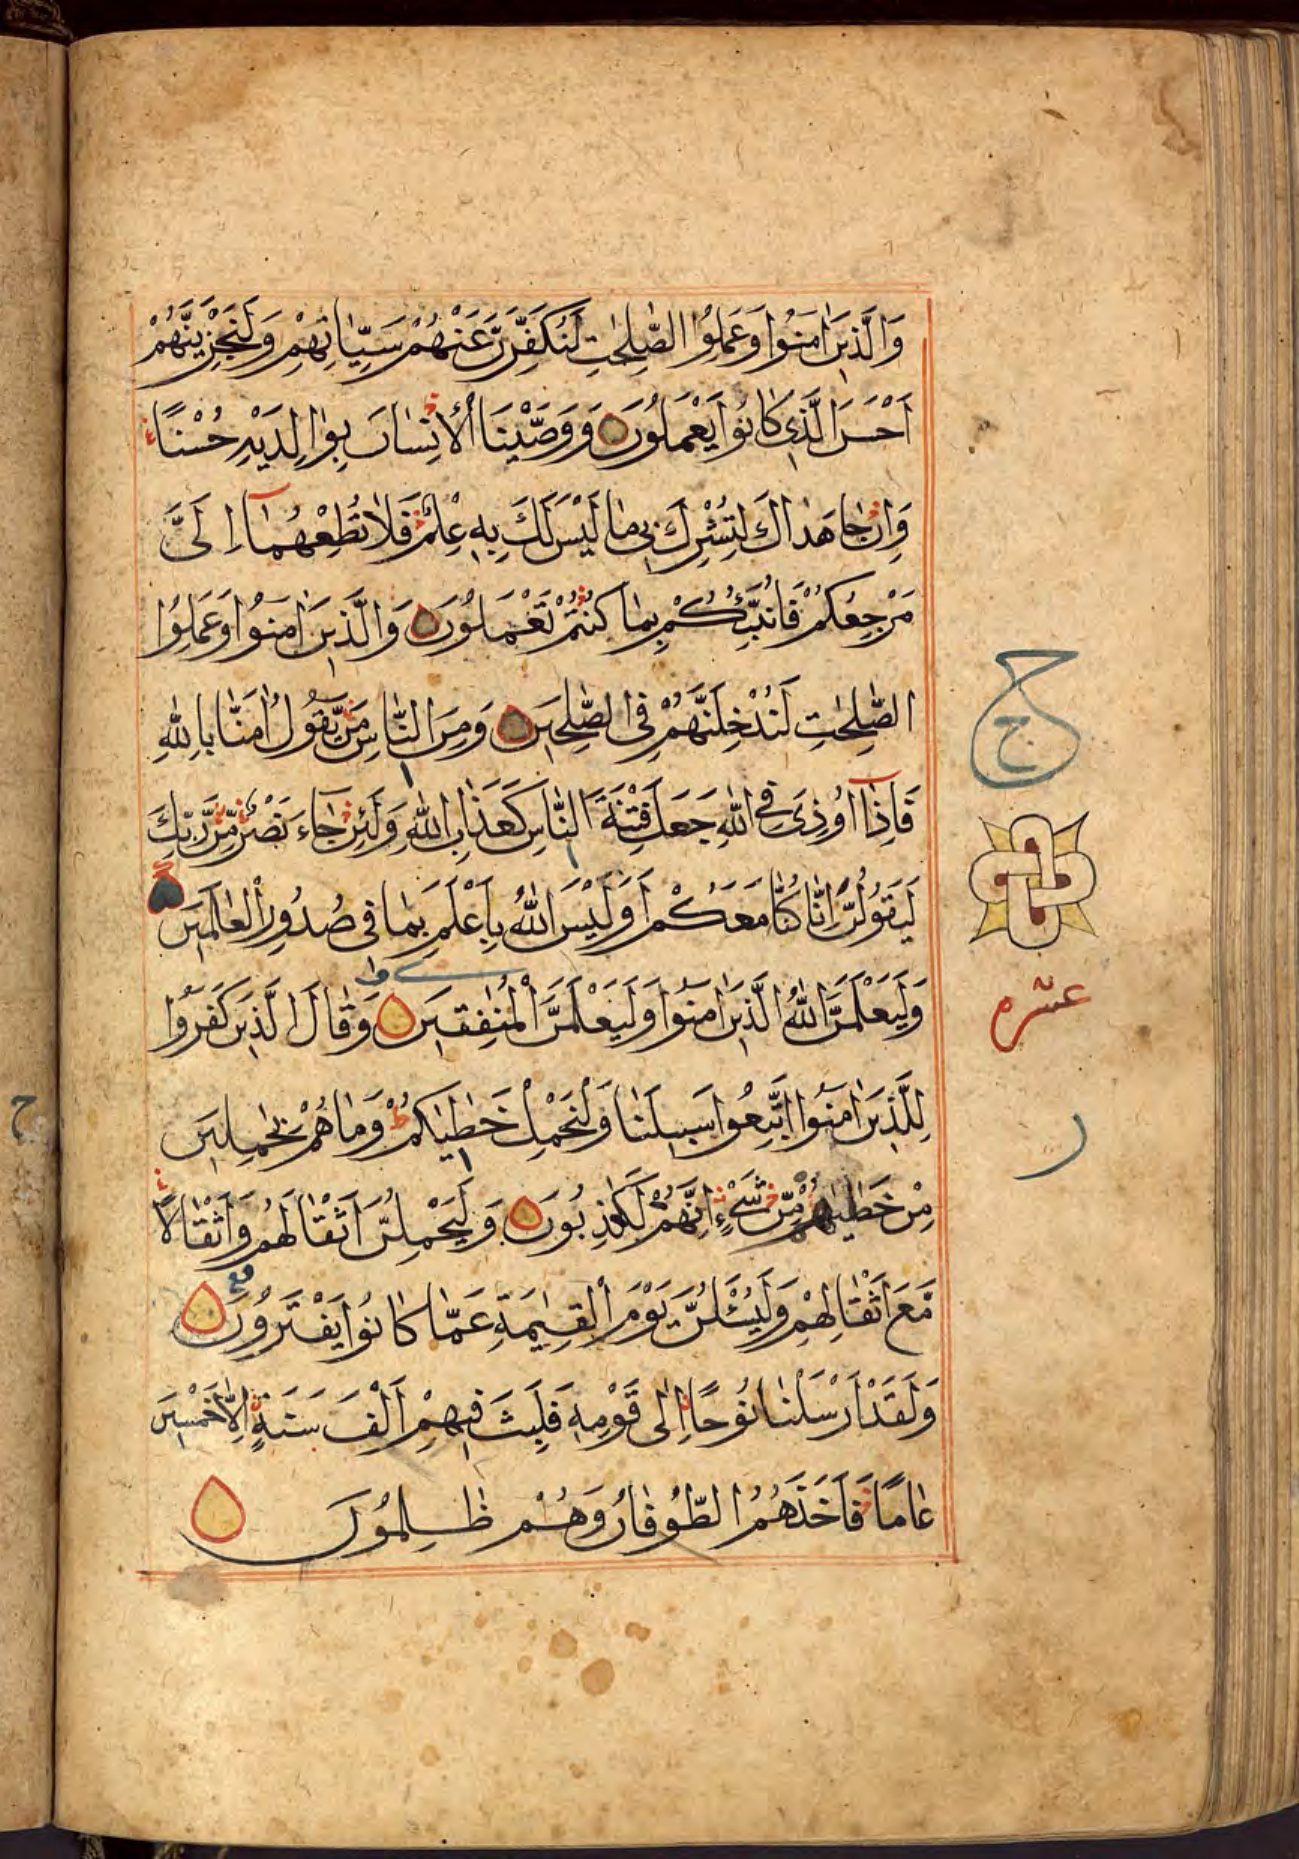 وَالَّذِينَ اٰمَنُوا وَعَمِلُوا الصّٰلِحٰتِ لَنُكَفِّرَنَّ عَنْهُمْ سَيِّاٰتِهِمْ وَلَنَجْزِيَنَّهُمْ
اَحْسَنَ الَّذِي كَانُوا يَعْمَلُونَ وَوَصَّيْنَا الْاِنْسَانَ بِوَالِدَيْهِ حُسْنًا
وَاِنْ جَاهَدَاكَ لِتُشْرِكَ بِي مَا لَيْسَ لَكَ بِهِ عِلْمٌ فَلَا تُطِعْهُمَا اِلَىَّ
مَرْجِعُكُمْ فَاُنَبِّئُكُمْ بِمَا كُنْتُمْ تَعْمَلُونَ وَالَّذِينَ اٰمَنُوا وَعَمِلُوا
الصّٰلِحٰتِ لَنُدْخِلَنَّهُمْ فِى الصّٰلِحِينَ وَمِنَ النَّاسِ مَنْ يَّقُولُ اٰمَنَّا بِاللّٰهِ
فَاِذَآ اُوذِىَ فِى اللّٰهِ جَعَلَ فِتْنَةَ النَّاسِ كَعَذَابِ اللّٰهِ وَلَئِنْ جَآءَ نَصْرٌ مِّنْ رَّبِّكَ
لَيَقُولُنَّ اِنَّا كُنَّا مَعَكُمْ اَوَلَيْسَ اللّٰهُ بِاَعْلَمَ بِمَا فِى صُدُورِ الْعٰالَمِينَ
وَلَيَعْلَمَنَّ اللّٰهُ الَّذِينَ اٰمَنُوا وَلَيَعْلَمَنَّ الْمُنٰفِقِينَ وَقَالَ الَّذِينَ كَفَرُوا
لِلَّذِينَ اٰمَنُوا اتَّبِعُوا سَبِيلَنَا وَلْنَحْمِلْ خَطٰيٰكُمْ وَمَا هُمْ بِحٰمِلِينَ
مِنْ خَطٰيٰهُمْ مِّنْ شَىْءٍ اِنَّهُمْ لَكٰذِبُونَ وَلَيَحْمِلُنَّ اَثْقَالَهُمْ وَاَثْقَالًا
مَّعَ اَثْقَالِهِمْ وَلَيُسْـَٔلُنَّ يَوْمَ الْقِيٰمَةِ عَمَّا كَانُوا يَفْتَرُونَ
وَلَقَدْ اَرْسَلْنَا نُوحًا اِلٰى قَوْمِهِ فَلَبِثَ فِيهِمْ اَلْفَ سَنَةٍ اِلَّا خَمْسِينَ
عَامًا فَاَخَذَهُمُ الطُّوفَانُ وَهُمْ ظٰلِمُونَ
ح
ج
عشره
ر
ح